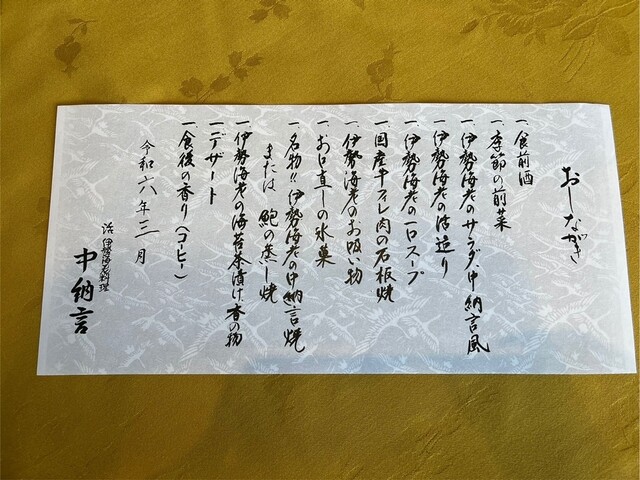 おしながき
一、食前酒
一、季節の前菜
一、伊勢海老のサラダ、中納言風
一、伊勢海老の活造り
一、伊勢海老の一口スープ
一、国産牛フィレ肉の石板焼
一、伊勢海老のお吸い物
一、お口直しの氷菓
一、名物!!伊勢海老の中納言焼
または 鮑の蒸し焼
一、伊勢海老の海苔茶漬け、香の物
一、デザート
一、食後の香り(コーヒー)
令和六年三月
活伊勢海老料理
中納言